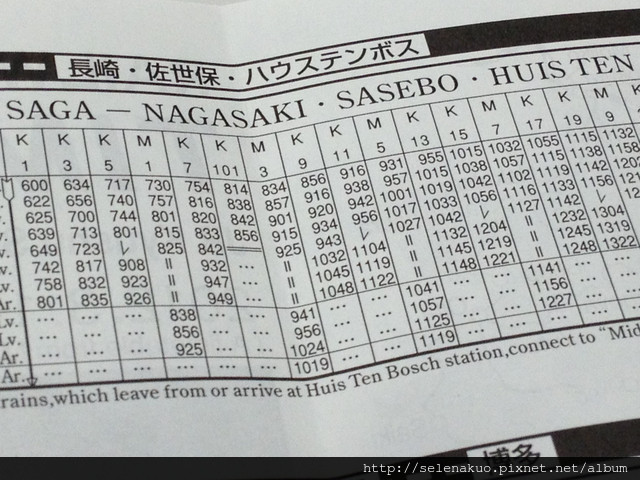 長崎・佐世保・ハウステンボス
SAGA — NAGASAKI・SASEBO・HUIS TEN
K K K M K K M K K M K K M K K
1 3 5 1 7 101 3 9 11 5 13 15 7 17 19 9
600 634 717 730 754 814 834 856 916 931 955 1015 1032 1055 1115 1132
622 656 740 757 816 838 857 916 938 957 1015 1038 1057 1115 1138
625 700 744 801 820 842 901 920 942 1001 1019 1042 1102 1119 1142
639 713 801 815 833 856 915 934 956 1017 1033 1056 1116 1133 1156
649 723 レ 825 842 925 943 レ 1027 1042 レ 1127 1142 レ
742 817 908 || 932 … || 1032 1104 || 1132 1204 || 1232 1304
Lv. 758 832 923 || 947 … || 1045 1119 || 1145 1219 || 1245 1319
Ar. 801 835 926 || 949 … || 1048 1122 || 1148 1221 || 1248 1322
Lv. … … … 838 … … … 941 … … 1041 … … 1141
Lv. … … … 856 … … … 956 … … 1057 … … 1156
Ar. … … … 925 … … … 1024 … … 1125 … … 1227
Ar. … … … … … … 1019 … … 1119
rains,which leave from or arrive at Huis Ten Bosch station,connect to “Mid
博多
http://selenakuo.pixnet.net/album